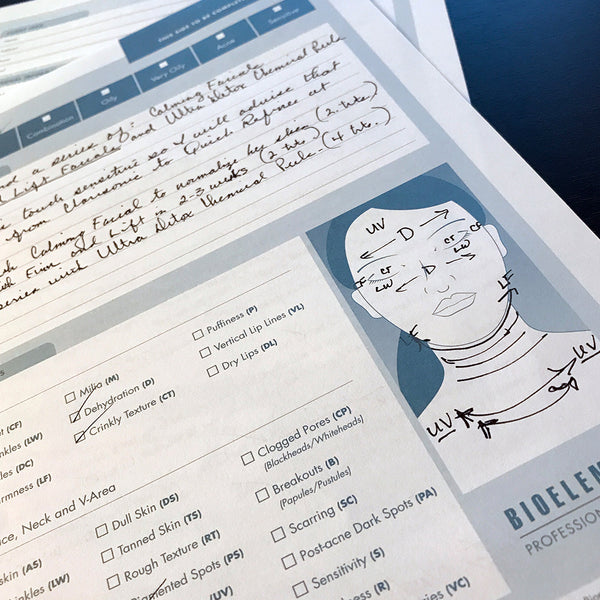 THIS SIDE TO BE COMPLETED
Combination
Oily
Very Oily
Acne
Sensitive
a series of: Calming Facial
Lift Facials and Ultra Detox Chemical Peels
touch sensitive so I will advise that
from Clarisonic to Quick Refiner at
Calming Facial to normalize by skin (2 wks)
Firm and Lift in 2-3 weeks (2 wks)
series with Ultra Detox Chemical Peels. (4 wks.)
Milia (M)
Dehydration (D)
Crinkly Texture (CT)
Puffiness (P)
Vertical Lip Lines (VL)
Dry Lips (DL)
(CF)
(LW)
(DC)
(LF)
Neck and V-Area
(AS)
(LW)
Dull Skin (DS)
Tanned Skin (TS)
Rough Texture (RT)
Spots (PS)
(UV)
Clogged Pores (CP)
(Blackheads/Whiteheads)
Breakouts (B)
(Papules/Pustules)
Scarring (SC)
Post-acne Dark Spots (PA)
Sensitivity (S)
(R)
(VC)
UV
D
CT
LW
CF
CT
LW
D
CF
LF
LF
UV
UV
BIOELEM
PROFESSION